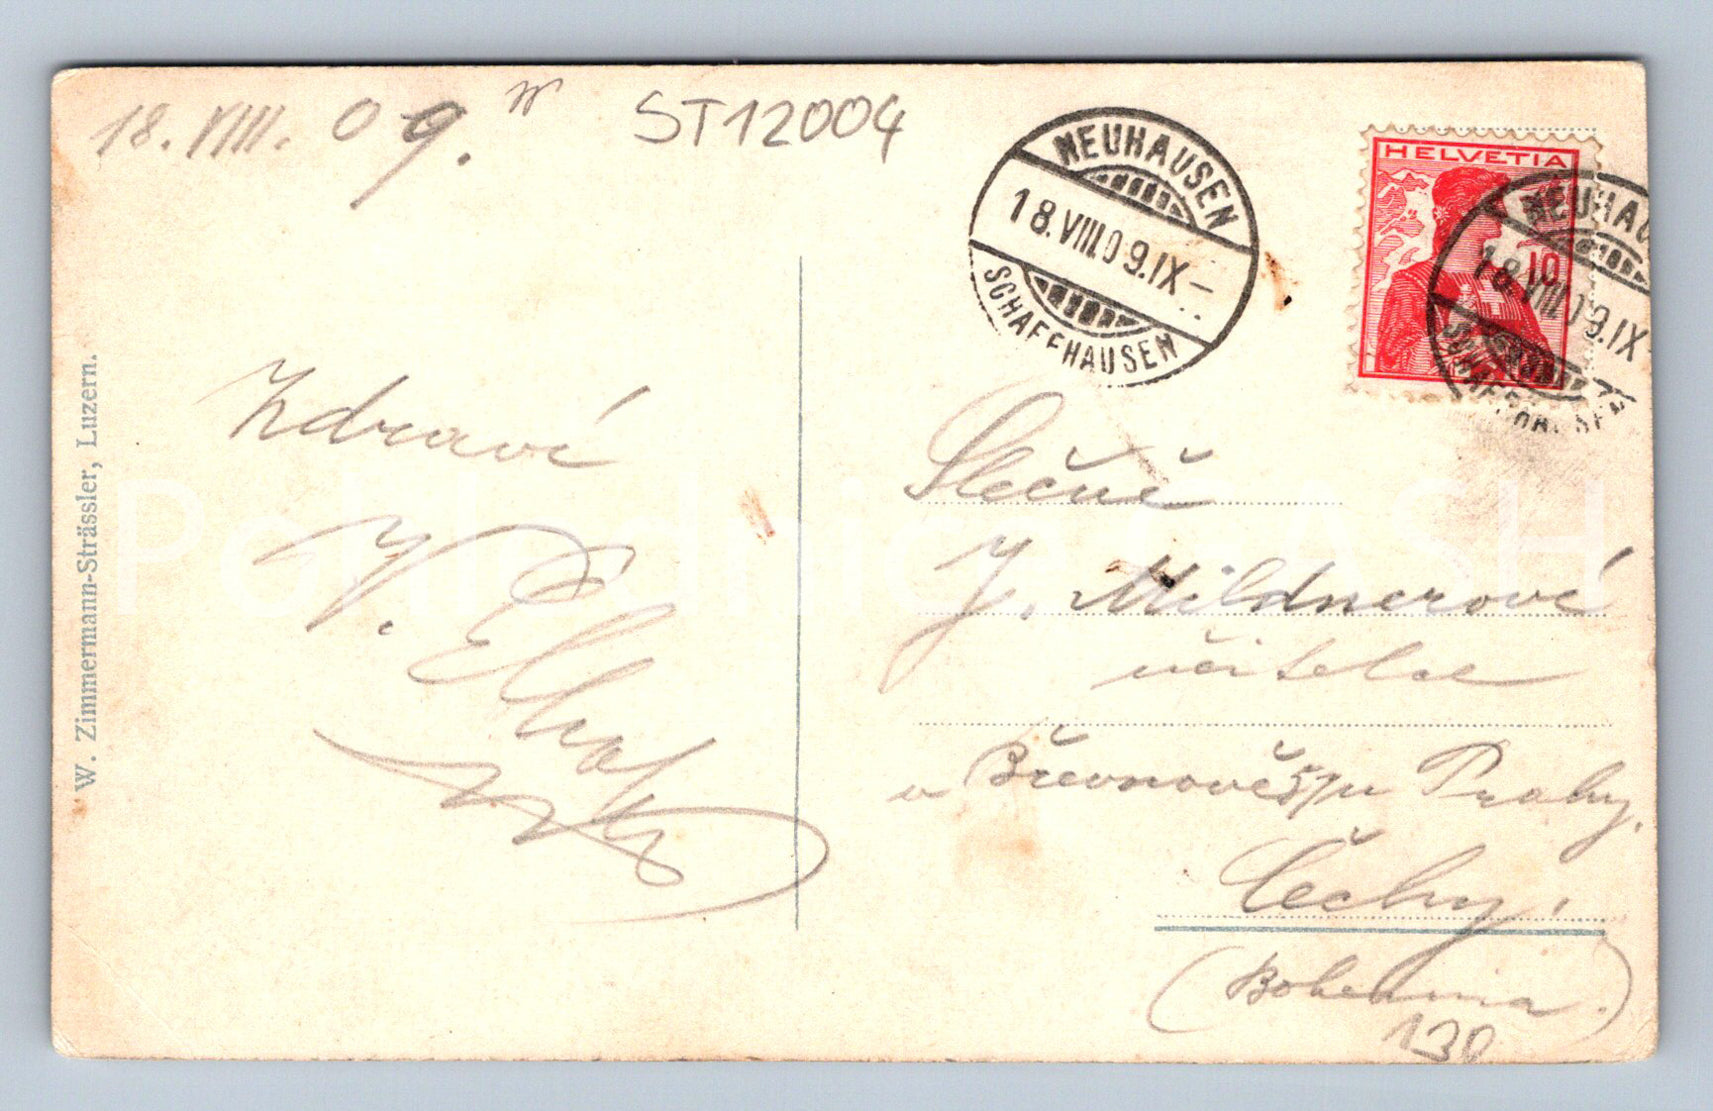 18. VIII. 09.
ST12004
NEUHAUSEN
18.VIII.09.IX-
SCHAFFHAUSEN
HELVETIA
10
NEUHAU
18.VIII.09.IX
SCHAFFHAUSEN
W. Zimmermann-Strässler, Luzern.
Zdraví
Slečně
J. Mildnerové
učitelce
v Břevnově u Prahy.
Čechy.
(Bohemia.)
130
Pohlednice CASH